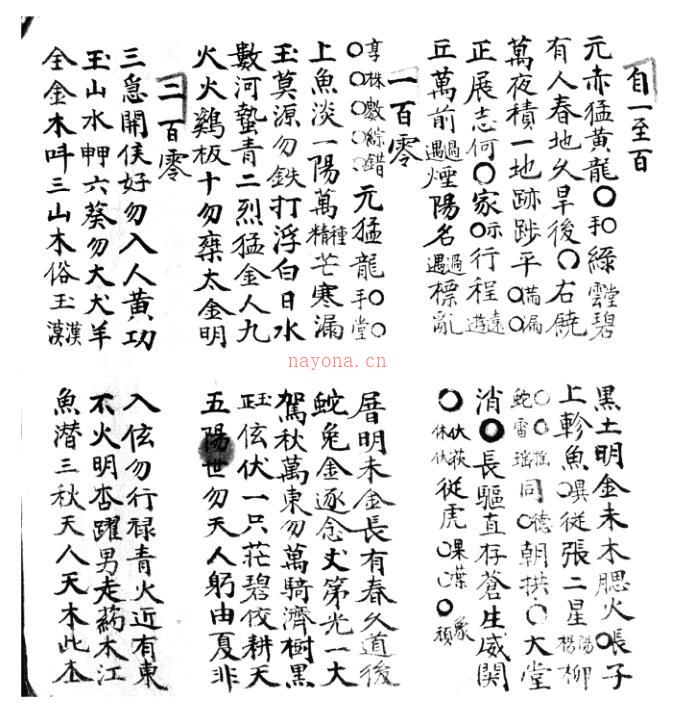 自一至百
元赤猛黃龍〇手〇綠雲堂碧
黑土明金未木腮火〇張子
有人春地久旱後〇右饒
上軫魚從張二星楊陽柳
萬夜積一地跡平〇滿〇漏
〇〇蛇雷瑶同〇德朝拱〇大堂
正展志何〇家示行程遠遊
消〇長驅直存蒼生威関
丘萬前過遇煙陽名過遇標亂
〇伏休伏從虎〇〇象須
一百零
享林數綜錯〇〇〇〇元猛龍〇手〇堂
厝明未金長有春久道後
上魚淡一陽萬種精芒寒漏
蛇兔金逐念丈第光一大
玉莫源勿鉄打浮白日水
駕秋萬東勿萬騎濟樹黑
數河蟄青二烈猛金人九
伭伏一只茫碧佼耕天
火火鷄板十勿棄太金明
五陽世勿天人躬由夏非
二百零
三急開侯好勿入人黃功
入伭勿行祿青火近有東
玉山水六葵勿大犬羊
不火明杏躍男走药木江
全金木呌三山木俗玉漢漠
魚潛三秋天人天木此
nayona.cn